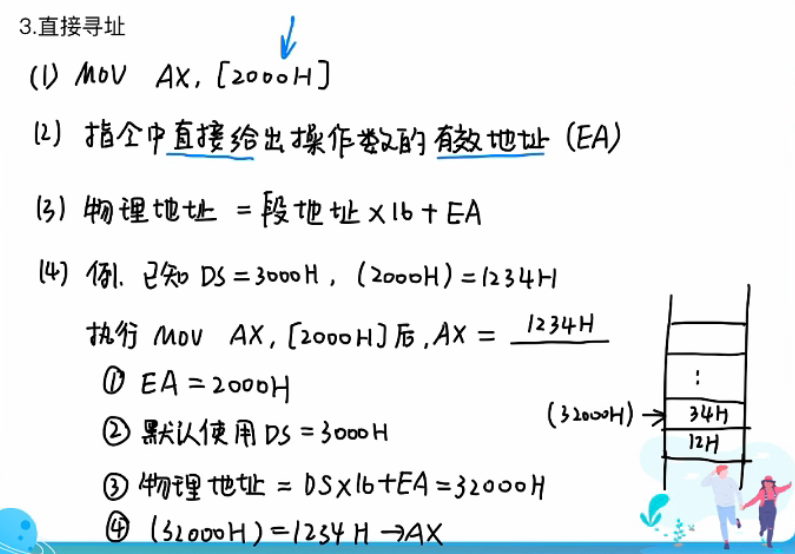 3.直接寻址
(1) MOV AX, [2000H]
(2) 指令中直接给出操作数的有效地址 (EA)
(3) 物理地址 = 段地址×16+EA
(4) 例. 已知 DS=3000H, (2000H)=1234H
执行 MOV AX, [2000H]后, AX = 1234H
① EA = 2000H
② 默认使用 DS = 3000H
③ 物理地址 = DS×16+EA=32000H
④ (32000H)=1234H→AX
:
(32000H)→ 34H
12H